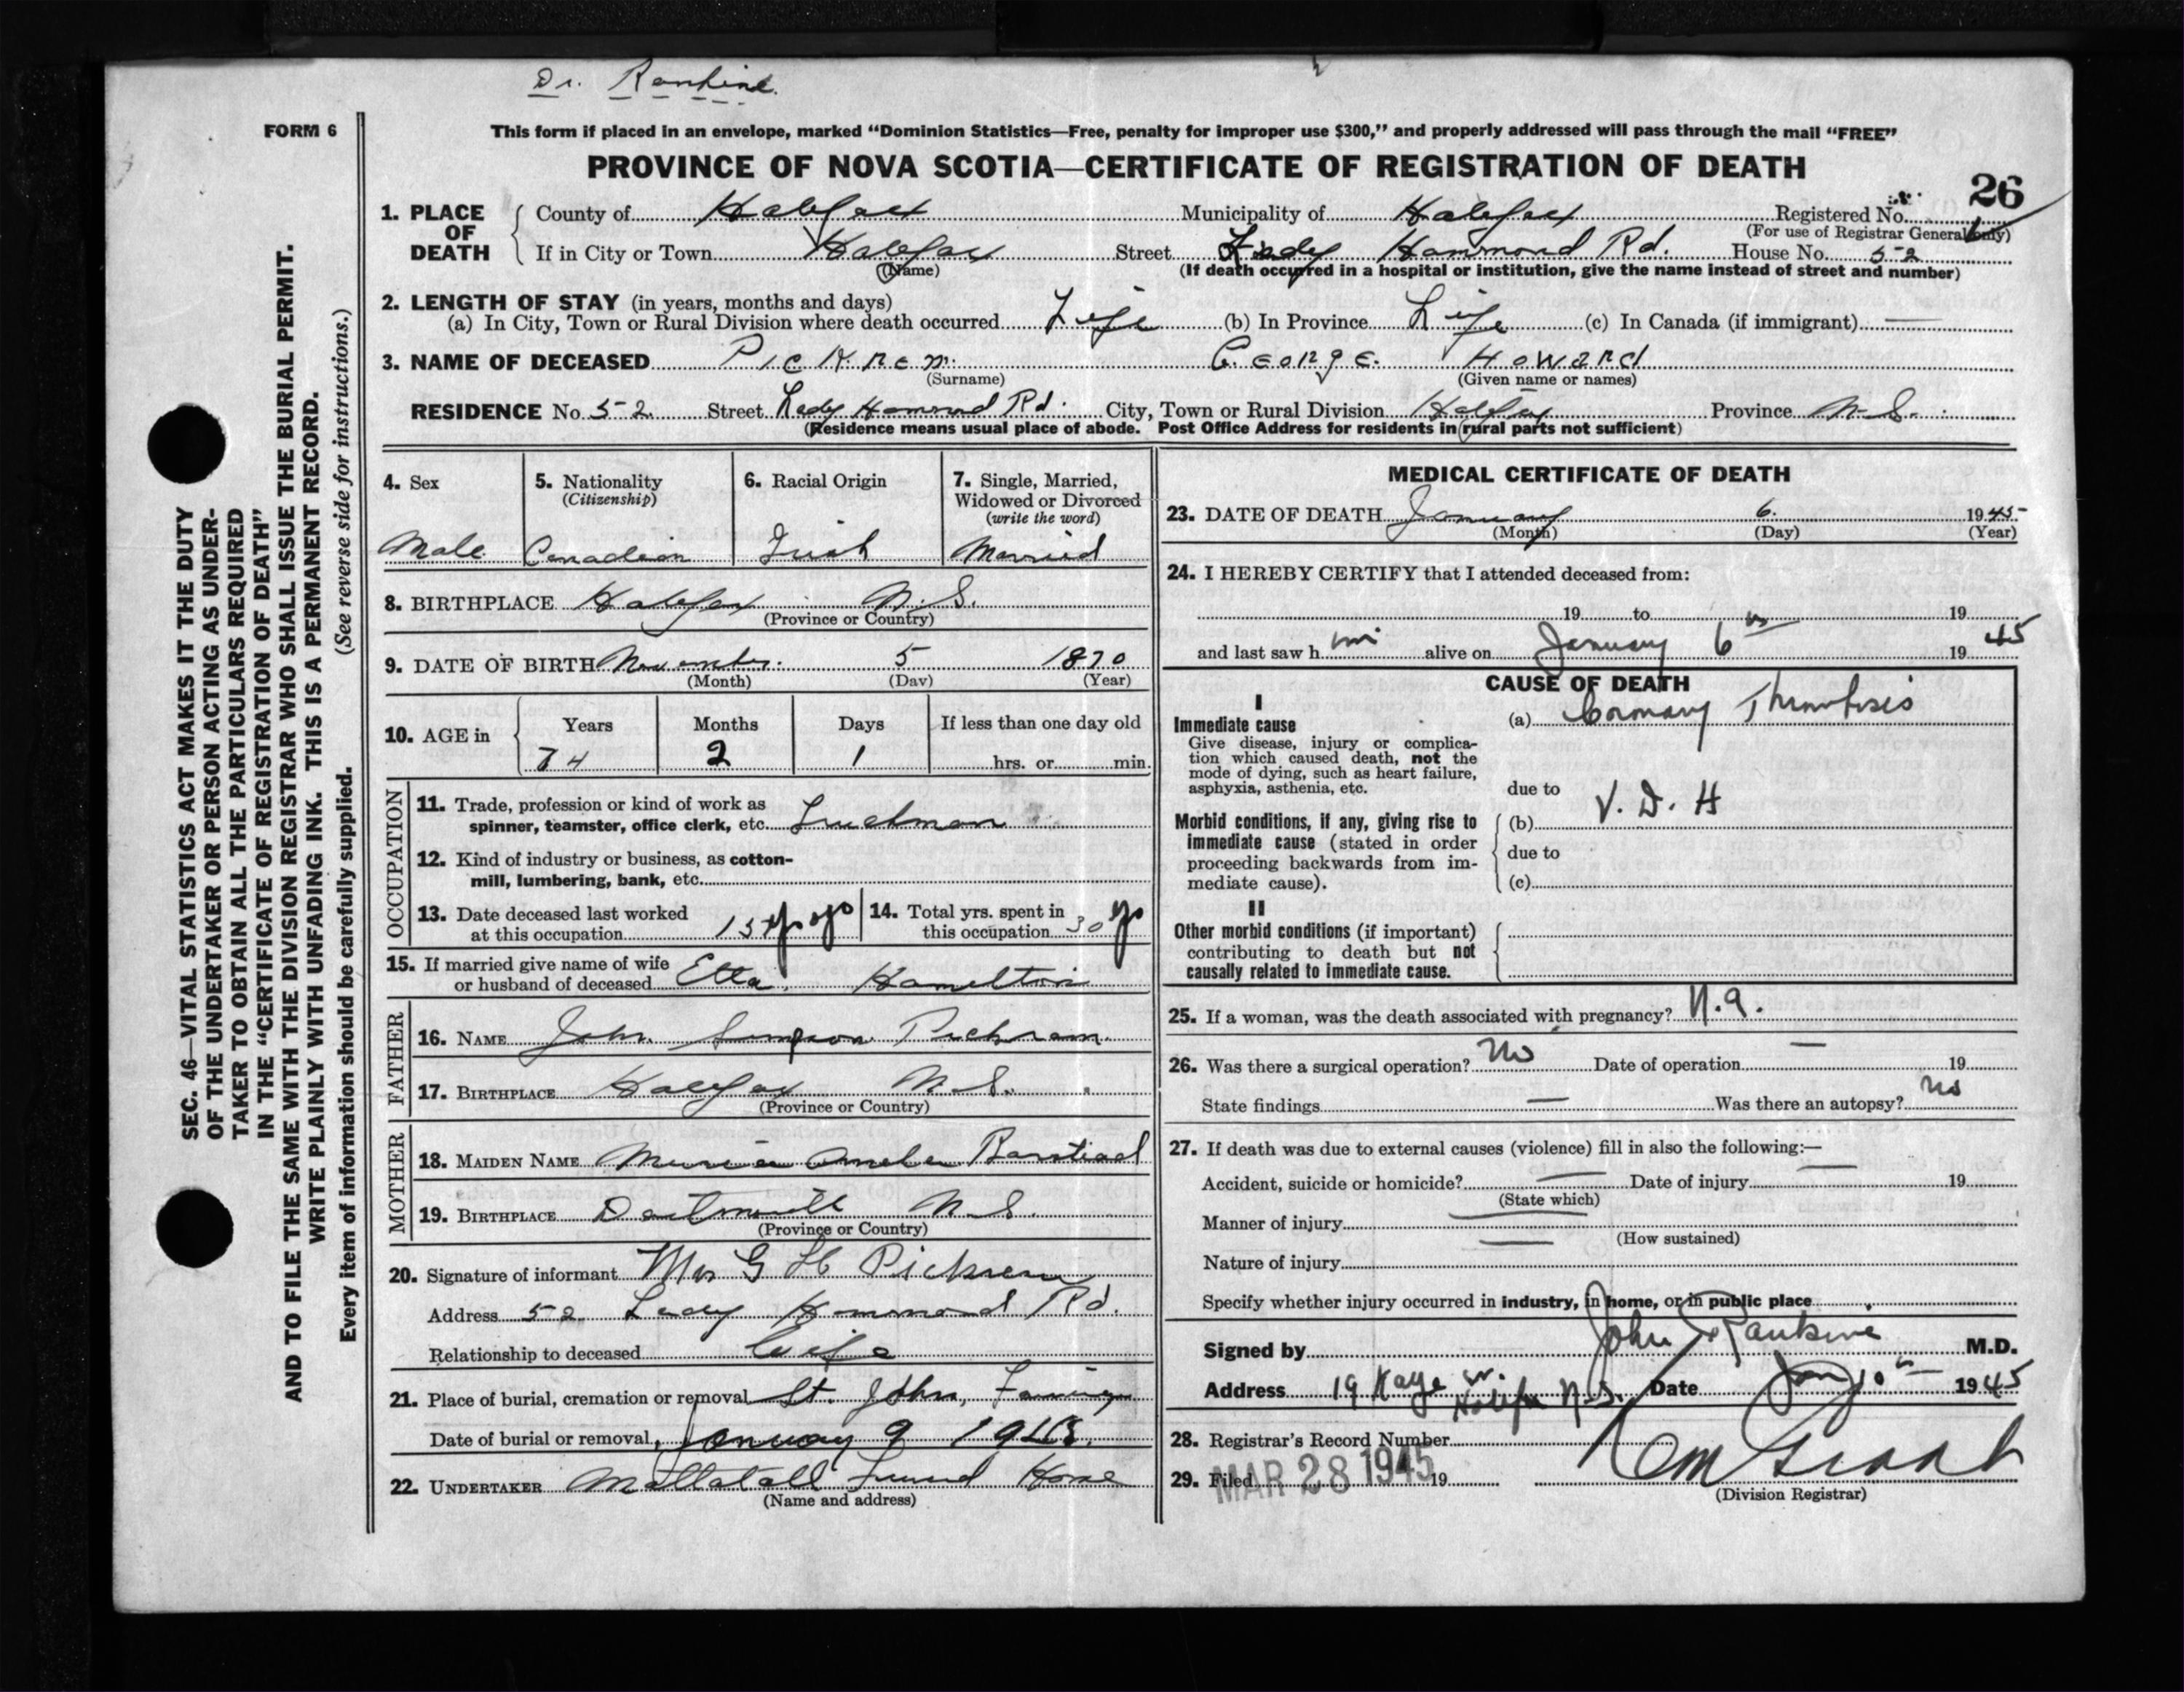 Dr. Rankine.
FORM 6
This form if placed in an envelope, marked “Dominion Statistics—Free, penalty for improper use $300,” and properly addressed will pass through the mail “FREE”
PROVINCE OF NOVA SCOTIA—CERTIFICATE OF REGISTRATION OF DEATH
26
1. PLACE OF DEATH
County of Halifax Municipality of Halifax Registered No.
(For use of Registrar General only)
If in City or Town Halifax Street Lady Hammond Rd. House No. 52
(Name) (If death occurred in a hospital or institution, give the name instead of street and number)
2. LENGTH OF STAY (in years, months and days)
(a) In City, Town or Rural Division where death occurred Life (b) In Province Life (c) In Canada (if immigrant) —
3. NAME OF DECEASED Pickrem George Howard
(Surname) (Given name or names)
RESIDENCE No. 52 Street Lady Hammond Rd. City, Town or Rural Division Halifax Province N.S.
(Residence means usual place of abode. Post Office Address for residents in rural parts not sufficient)
4. Sex
Male
5. Nationality
(Citizenship)
Canadian
6. Racial Origin
Irish
7. Single, Married,
Widowed or Divorced
(write the word)
Married
8. BIRTHPLACE Halifax N.S.
(Province or Country)
9. DATE OF BIRTH November 5 1870
(Month) (Day) (Year)
10. AGE in
Years Months Days If less than one day old
74 2 1 hrs. or min.
OCCUPATION
11. Trade, profession or kind of work as
spinner, teamster, office clerk, etc. Truckman
12. Kind of industry or business, as cotton-
mill, lumbering, bank, etc.
13. Date deceased last worked
at this occupation 15 yrs ago
14. Total yrs. spent in
this occupation 30 yrs
15. If married give name of wife
or husband of deceased Etta Hamelton
FATHER
16. NAME John Simpson Pickrem
17. BIRTHPLACE Halifax N.S.
(Province or Country)
MOTHER
18. MAIDEN NAME
19. BIRTHPLACE Dartmouth N.S.
(Province or Country)
20. Signature of informant Mrs G H Pickrem
Address 52 Lady Hammond Rd.
Relationship to deceased Wife
21. Place of burial, cremation or removal St. John,
Date of burial or removal January 9 1945.
22. UNDERTAKER Mattatall Funeral Home
(Name and address)
MEDICAL CERTIFICATE OF DEATH
23. DATE OF DEATH January 6. 1945
(Month) (Day) (Year)
24. I HEREBY CERTIFY that I attended deceased from:
19 to 19
and last saw h im alive on January 6 th 19 45
CAUSE OF DEATH
I
Immediate cause
Give disease, injury or complica-
tion which caused death, not the
mode of dying, such as heart failure,
asphyxia, asthenia, etc.
(a) Coronary Thrombosis
due to
Morbid conditions, if any, giving rise to
immediate cause (stated in order
proceeding backwards from im-
mediate cause).
(b) V. D. H
due to
(c)
II
Other morbid conditions (if important)
contributing to death but not
causally related to immediate cause.
25. If a woman, was the death associated with pregnancy? N.a.
26. Was there a surgical operation? No Date of operation — 19
State findings — Was there an autopsy? No
27. If death was due to external causes (violence) fill in also the following:—
Accident, suicide or homicide? — Date of injury — 19
(State which)
Manner of injury —
(How sustained)
Nature of injury —
Specify whether injury occurred in industry, in home, or in public place
Signed by John Rankine M.D.
Address 19 Kaye St. Halifax N.S. Date Jan 10th 1945
28. Registrar's Record Number
29. Filed MAR 28 1945 19
(Division Registrar)
SEC. 46—VITAL STATISTICS ACT MAKES IT THE DUTY
OF THE UNDERTAKER OR PERSON ACTING AS UNDER-
TAKER TO OBTAIN ALL THE PARTICULARS REQUIRED
IN THE “CERTIFICATE OF REGISTRATION OF DEATH”
AND TO FILE THE SAME WITH THE DIVISION REGISTRAR WHO SHALL ISSUE THE BURIAL PERMIT.
WRITE PLAINLY WITH UNFADING INK. THIS IS A PERMANENT RECORD.
Every item of information should be carefully supplied. (See reverse side for instructions.)